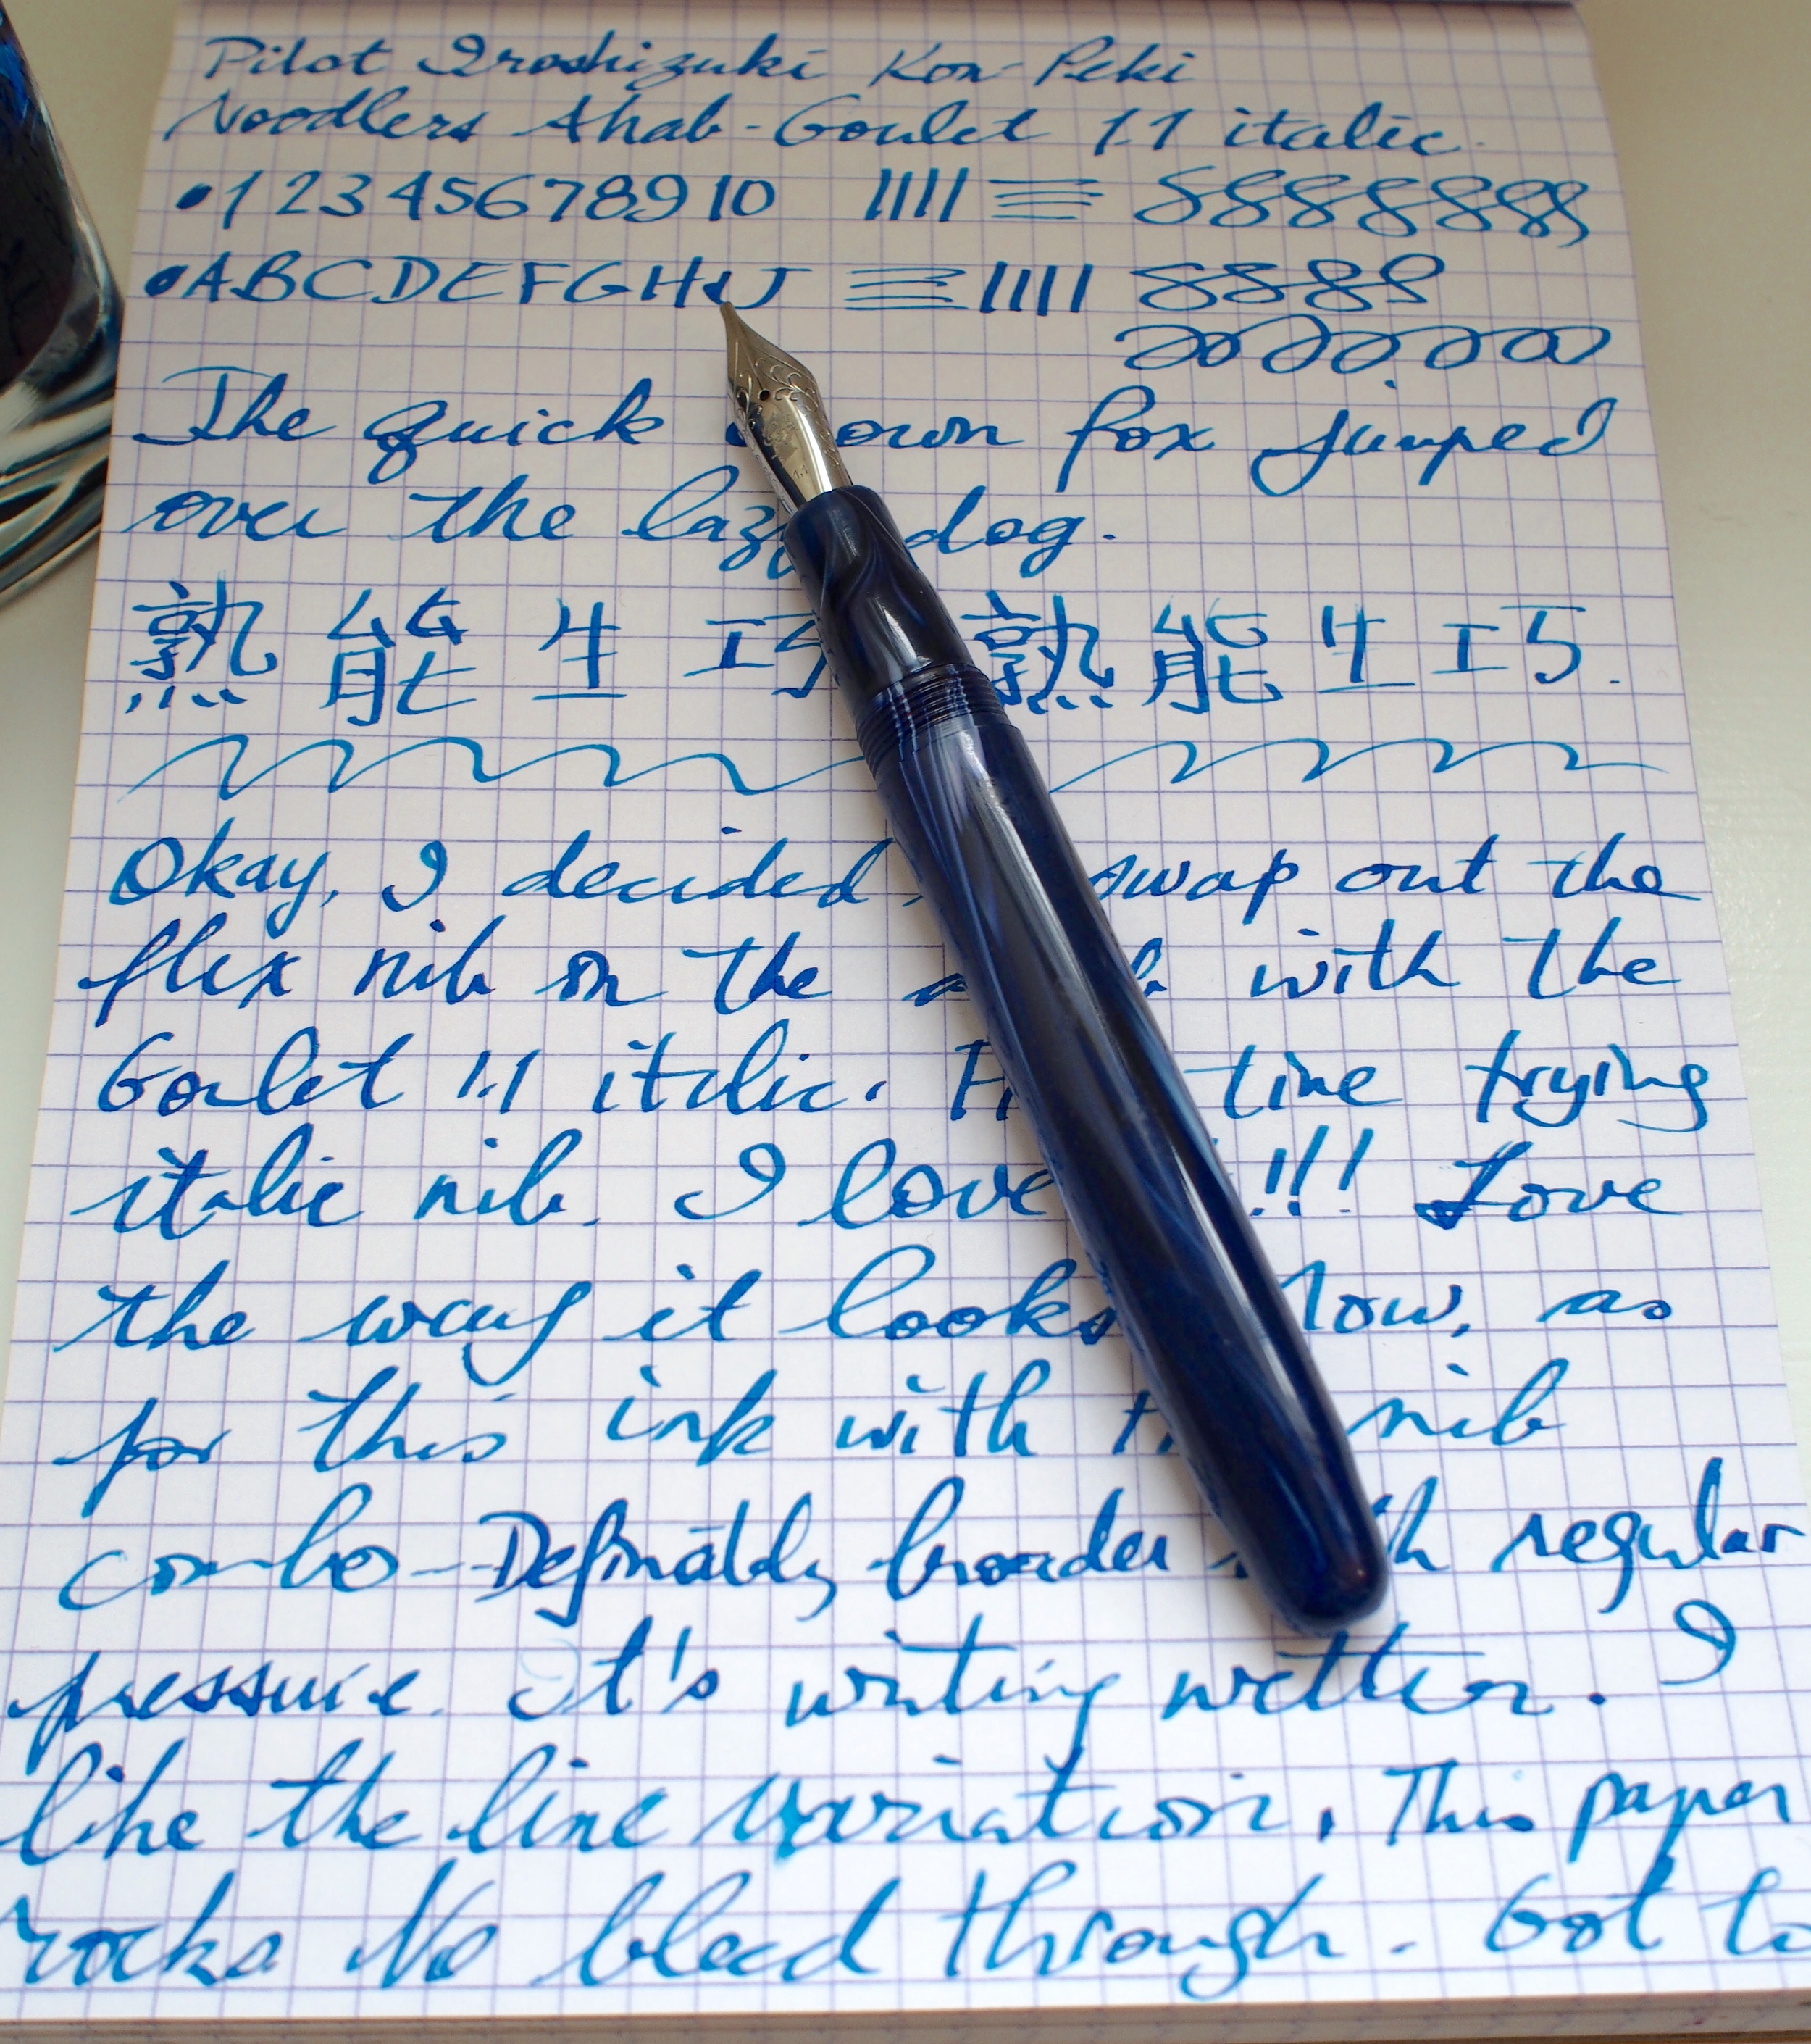 Pilot Iroshizuki Kon-Peki
Noodlers Ahab-Goulet 1.1 italic.
1 2 3 4 5 6 7 8 9 10
A B C D E F G H I J
The quick own fox jumped
over the lazy dog.
熟能生巧 熟能生巧.
Okay, I decided swap out the
flex nib on the with the
Goulet 1.1 italic. time trying
italic nib. I love !!! Love
the way it looks Now, as
for this ink with nib
combo--Definately broader regular
pressure. It's writing wetter. I
like the line variation. This paper
rocks No bleed through. Got to
1.1